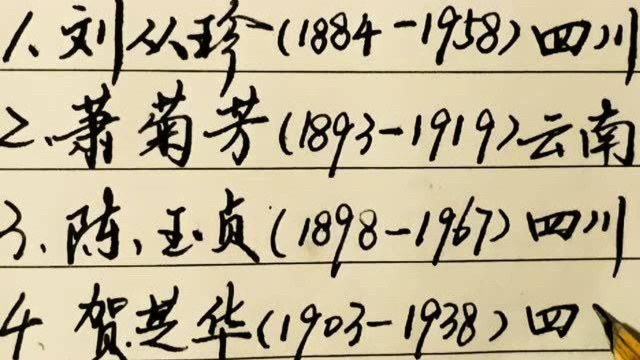 1、刘从珍(1884-1958)四川
2、萧菊芳(1893-1919)云南
3、陈玉贞(1898-1967)四川
4 贺芝华(1903-1938)四